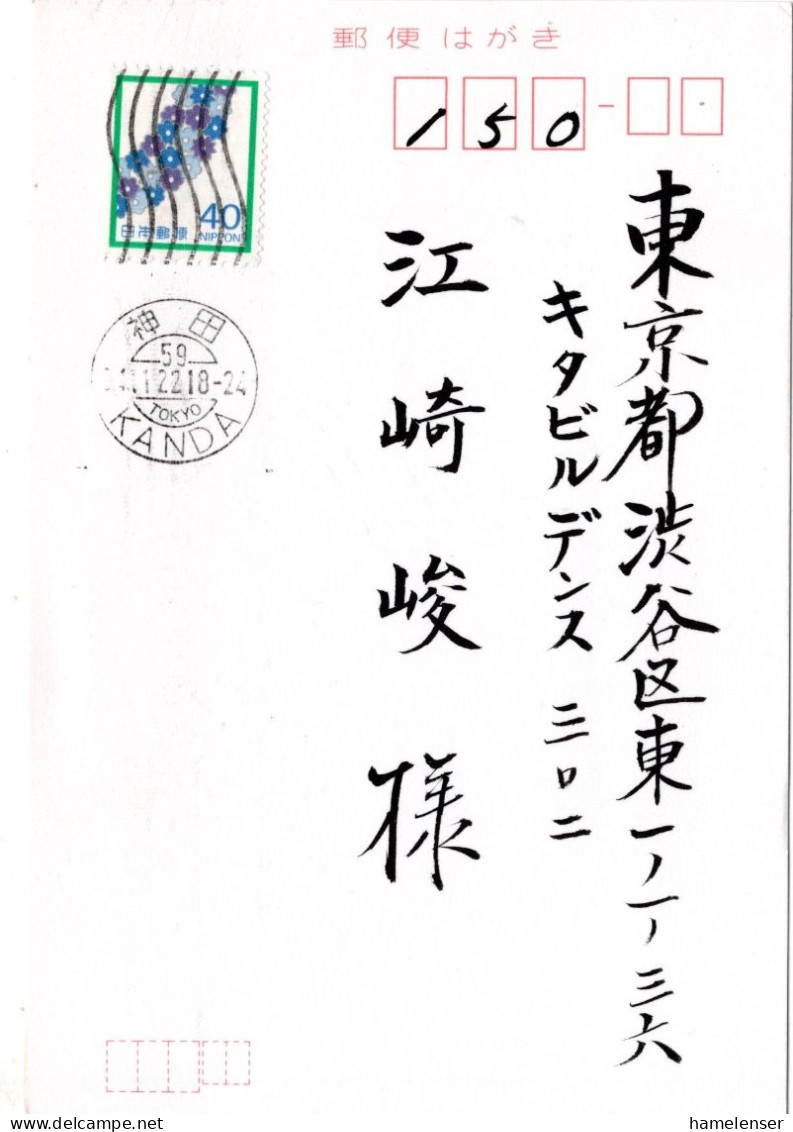 郵便はがき
150
東京都渋谷区東一ノ一ノ三六
キタビルデンス 三ロ二
江崎峻様
40
日本郵便
NIPPON
神田
59
11.22 18-24
TOKYO
KANDA
delcampe.net
hamelenser